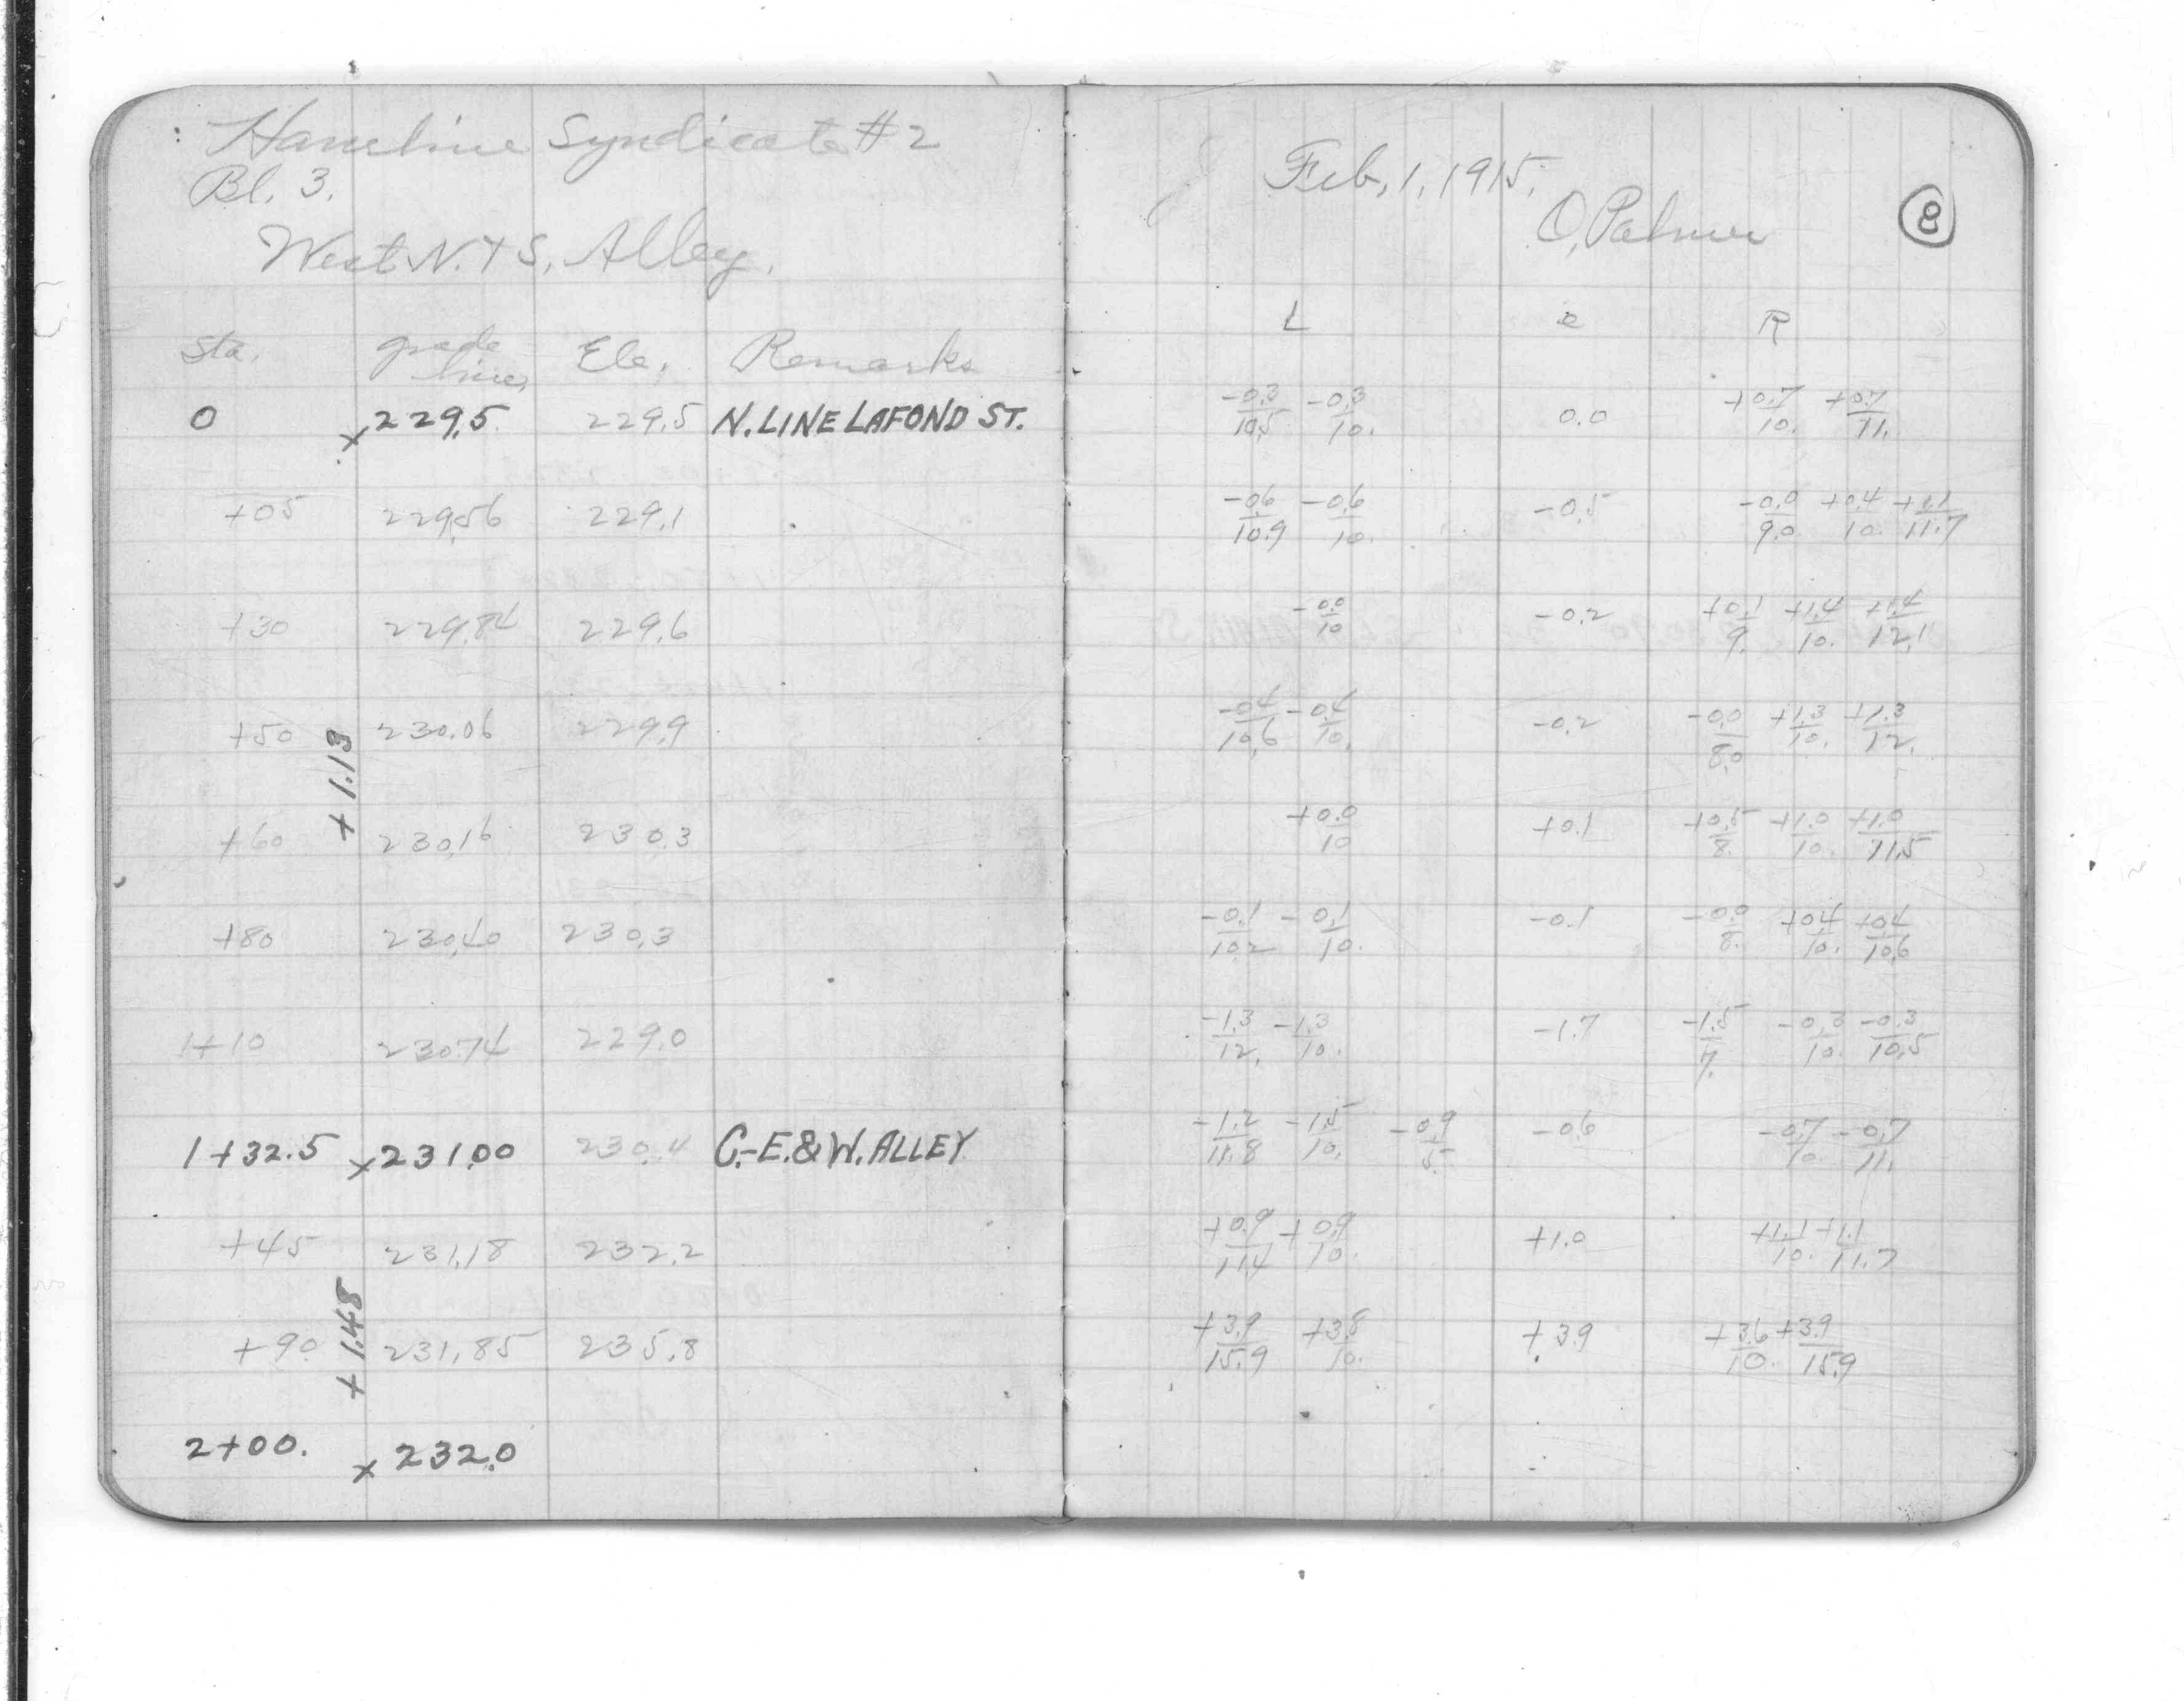 Hamline Syndicate #2
Bl. 3.
West N. + S. Alley.
Sta. grade lines Ele. Remarks
0 x229.5 229.5 N. LINE LAFOND ST.
+05 229.56 229.1
+30 229.84 229.6
+50 230.06 229.9
+ 1.13
+60 230.16 230.3
+80 230.40 230.3
1+10 230.74 229.0
1+32.5 x231.00 230.4 C.-E.& W. ALLEY
+45 231.18 232.2
+ 1.48
+90 231.85 235.8
2+00. x 232.0
Feb. 1, 1915.
O. Palmer
8
L c R
-0.3/10.5 -0.3/10. 0.0 +0.7/10. +0.7/11.
-0.6/10.9 -0.6/10. -0.5 -0.0/9.0 +0.4/10. +1.1/11.7
-0.0/10 -0.2 +0.1/9. +1.4/10. +1.4/12.1
-0.4/10.6 -0.4/10. -0.2 -0.0/8.0 +1.3/10. +1.3/12.
+0.0/10 +0.1 +0.5/8. +1.0/10. +1.0/11.5
-0.1/10.2 -0.1/10. -0.1 -0.0/8. +0.4/10. +0.4/10.6
-1.3/12. -1.3/10. -1.7 -1.5/7. -0.3/10. -0.3/10.5
-1.2/11.8 -1.5/10. -0.9/5. -0.6 -0.7/10. -0.7/11.
+0.9/11.4 +0.9/10. +1.0 +1.1/10. +1.1/11.7
+3.9/15.9 +3.8/10. +3.9 +3.6/10. +3.9/15.9